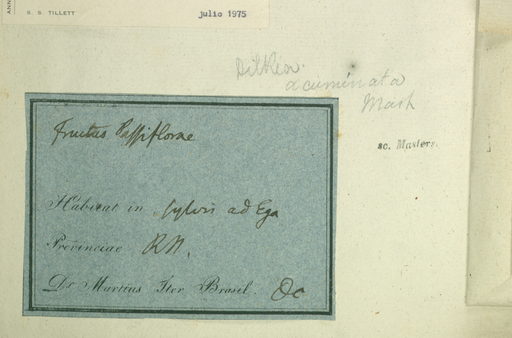 S. S. TILLETT
julio 1975
Dilkea
acuminata
Mast
sc. Masters.
Fructus Passiflorae
Habitat in sylvis ad Ega
Provinciae RN.
Dr Martius Iter Brasil. Dc